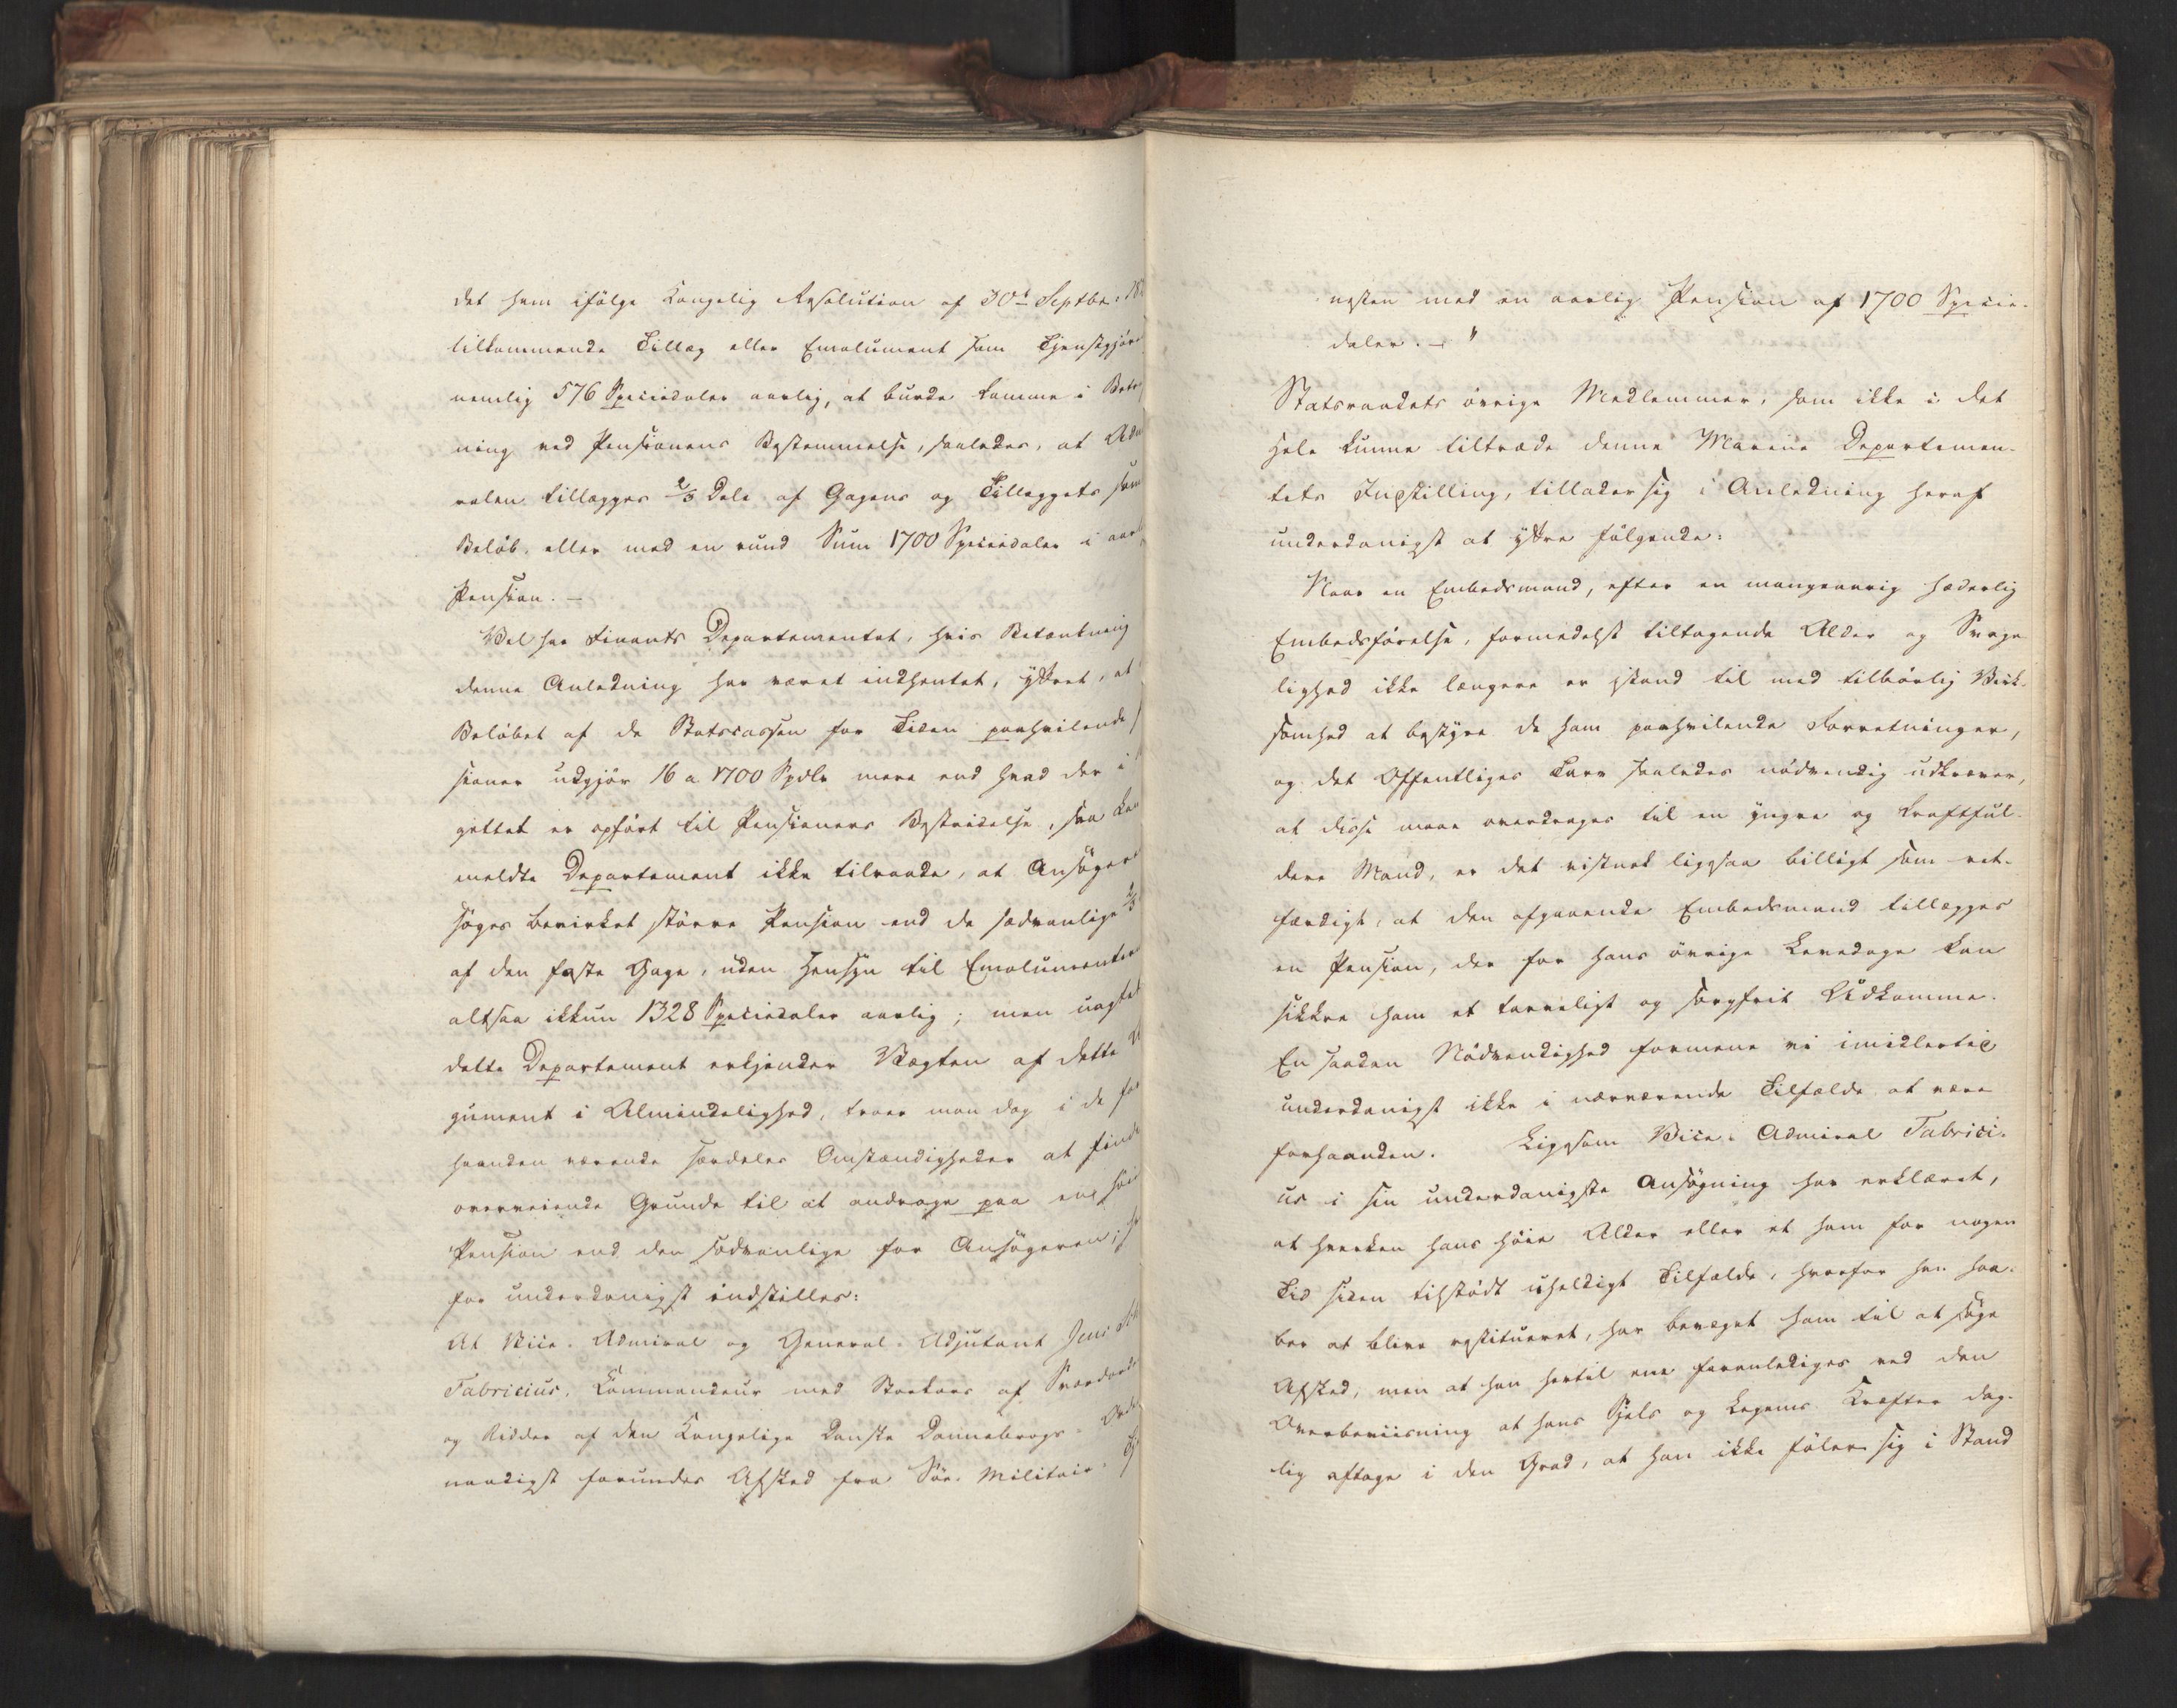 det ham ifölge Kongelig Resolution af 30t Septbr: 18
tilkommende Tillæg eller Emolument som Tjenstgjör
nemlig 576 Speciedaler aarlig, at burde komme i Bereg
ning ved Pensionens Bestemmelse, saaledes, at Adm
ralen tillægges 2/3 Dele af Gagens og Tillæggets sam
Belöb, eller med en rund Sum 1700 Speciedaler i aarl
Pension. —
Vel har Finants Departementet, hvis Betænkning
denne Anledning har været indhentet, yttret, at
Belöbet af de Statscassen for Tiden paahvilende
sioner udgjör 16 a 1700 Spdlr mere end hvad der i
gettet er opfört til Pensioners Bestridelse, saa kan
meldte Departement ikke tilraade, at Ansögeren
söges bevirket större Pension end de sædvanlige 2/3
af den faste Gage, uden Hensyn til Emolumenter
altsaa ikkun 1328 Speciedaler aarlig; men uagtet
dette Departement erkjender Vægten af dette
gument i Almindelighed, troer man dog i de for
haanden værende særdeles Omstændigheder at finde
overveiende Grunde til at andrage paa en höi
Pension end den sædvanlige for Ansögeren;
for underdanigst indstilles:
At Vice-Admiral og General-Adjutant Jens
Fabricius, Kommandeur med Storkors af Sværdord
og Ridder af den Kongelige Danske Dannebrogs-Orde
naadigst forundes Afsked fra Söe-Militair-
nesten med en aarlig Pension af 1700 Specie-
daler. — "
Statsraadets övrige Medlemmer, som ikke i det
Hele kunne tiltræde denne Marine Departemen-
tets Indstilling, tillader sig i Anledning heraf
underdanigst at yttre fölgende:
Naar en Embedsmand, efter en mangeaarig hæderlig
Embedsförelse, formedelst tiltagende Alder og Svage-
lighed ikke længere er istand til med tilbörlig Virk-
somhed at bestyre de ham paahvilende Forretninger,
og det Offentliges Tarv saaledes nödvendig udkræver,
at disse maae overdrages til en yngre og kraftful-
dere Mand, er det vistnok ligesaa billigt som ret-
færdigt, at den afgaaende Embedsmand tillægges
en Pension, der for hans övrige Levedage kan
sikkre ham et tarveligt og sorgfrit Udkomme.
En saadan Nödvendighed formene vi imidlertid
underdanigst ikke i nærværende Tilfælde at være
forhaanden. Ligesom Vice-Admiral Fabrici-
us i sin underdanigste Ansögning har erklæret,
at hverken hans höie Alder eller et ham for nogen
Tid siden tilstödt uheldigt Tilfælde, hvorfor han haa-
ber at blive restitueret, har bevæget ham til at söge
Afsked, men at han hertil ene foranlediges ved den
Overbeviisning at hans Sjels og Legems Kræfter dag-
lig aftage i den Grad, at han ikke föler sig i Stand